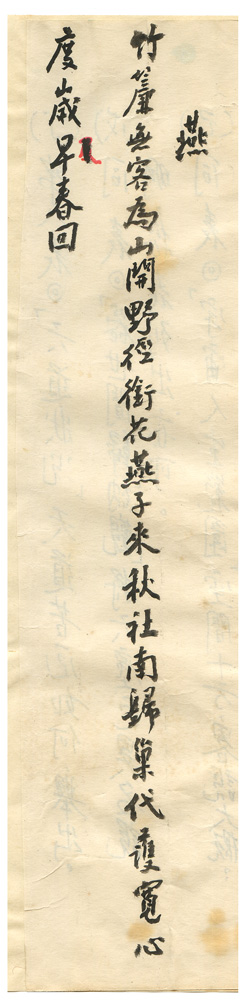 燕
竹簾無客為山開野徑銜花燕子來秋社南歸巢代護寬心
度歲早春回